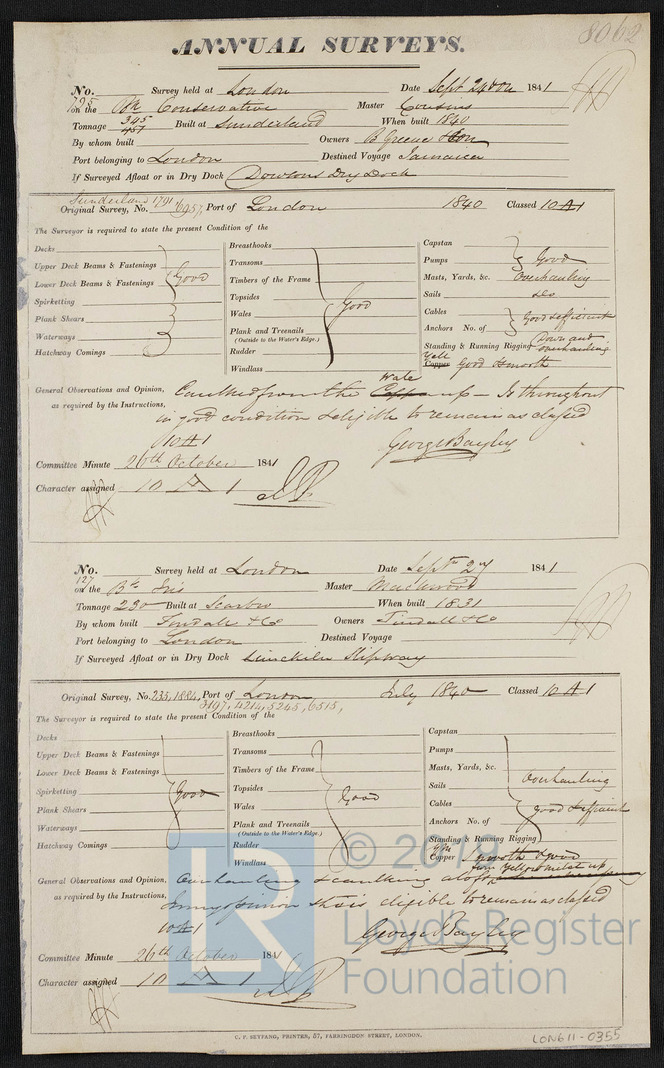 8062
ANNUAL SURVEYS.
No. Survey held at London Date Sept 24 1841
795
on the Bk Conservative Master Cousins
Tonnage 345/457 Built at Sunderland When built 1840
By whom built Owners B Greene & Son
Port belonging to London Destined Voyage Jamaica
If Surveyed Afloat or in Dry Dock Dowsons Dry Dock
Sunderland 1791
Original Survey, No. 6957, Port of London 1840 Classed 10 A 1
The Surveyor is required to state the present Condition of the
Decks
Upper Deck Beams & Fastenings
Lower Deck Beams & Fastenings
Spirketting
Plank Shears
Waterways
Hatchway Comings
Good
Breasthooks
Transoms
Timbers of the Frame
Topsides
Wales
Plank and Treenails
(Outside to the Water's Edge.)
Rudder
Windlass
Good
Capstan
Pumps
Good
Masts, Yards, &c. Overhauling
Sails do
Cables
Anchors No. of
Good & efficient
Standing & Running Rigging Down and overhauling
Yell
Copper Good & smooth
General Observations and Opinion, Caulked from the Wale up - Is throughout
as required by the Instructions, in good condition & eligible to remain as classed
10 A 1
George Bayley
Committee Minute 26th October 1841
Character assigned 10 A 1
No. Survey held at London Date Septr 27 1841
127
on the Bk Iris Master Mackwood
Tonnage 230 Built at Scarbro When built 1831
By whom built Tindall & Co Owners Tindall & Co
Port belonging to London Destined Voyage
If Surveyed Afloat or in Dry Dock Limekiln Slipway
Original Survey, No. 235, 1884, Port of London, July 1840 Classed 10 A 1
3197, 4214, 5245, 6515,
The Surveyor is required to state the present Condition of the
Decks
Upper Deck Beams & Fastenings
Lower Deck Beams & Fastenings
Spirketting
Plank Shears
Waterways
Hatchway Comings
Good
Breasthooks
Transoms
Timbers of the Frame
Topsides
Wales
Plank and Treenails
(Outside to the Water's Edge.)
Rudder
Windlass
Good
Capstan
Pumps
Masts, Yards, &c.
Sails
Overhauling
Cables
Anchors No. of
Good & efficient
Standing & Running Rigging
Copper smooth & good
General Observations and Opinion, Overhauling & caulking aloft
as required by the Instructions, in my opinion she is eligible to remain as classed
10 A 1
George Bayley
Committee Minute 26th October 1841
Character assigned 10 A 1
© 2019
Lloyd's Register
Foundation
LR
C. F. SEYFANG, PRINTER, 57, FARRINGDON STREET, LONDON.
LON611-0355